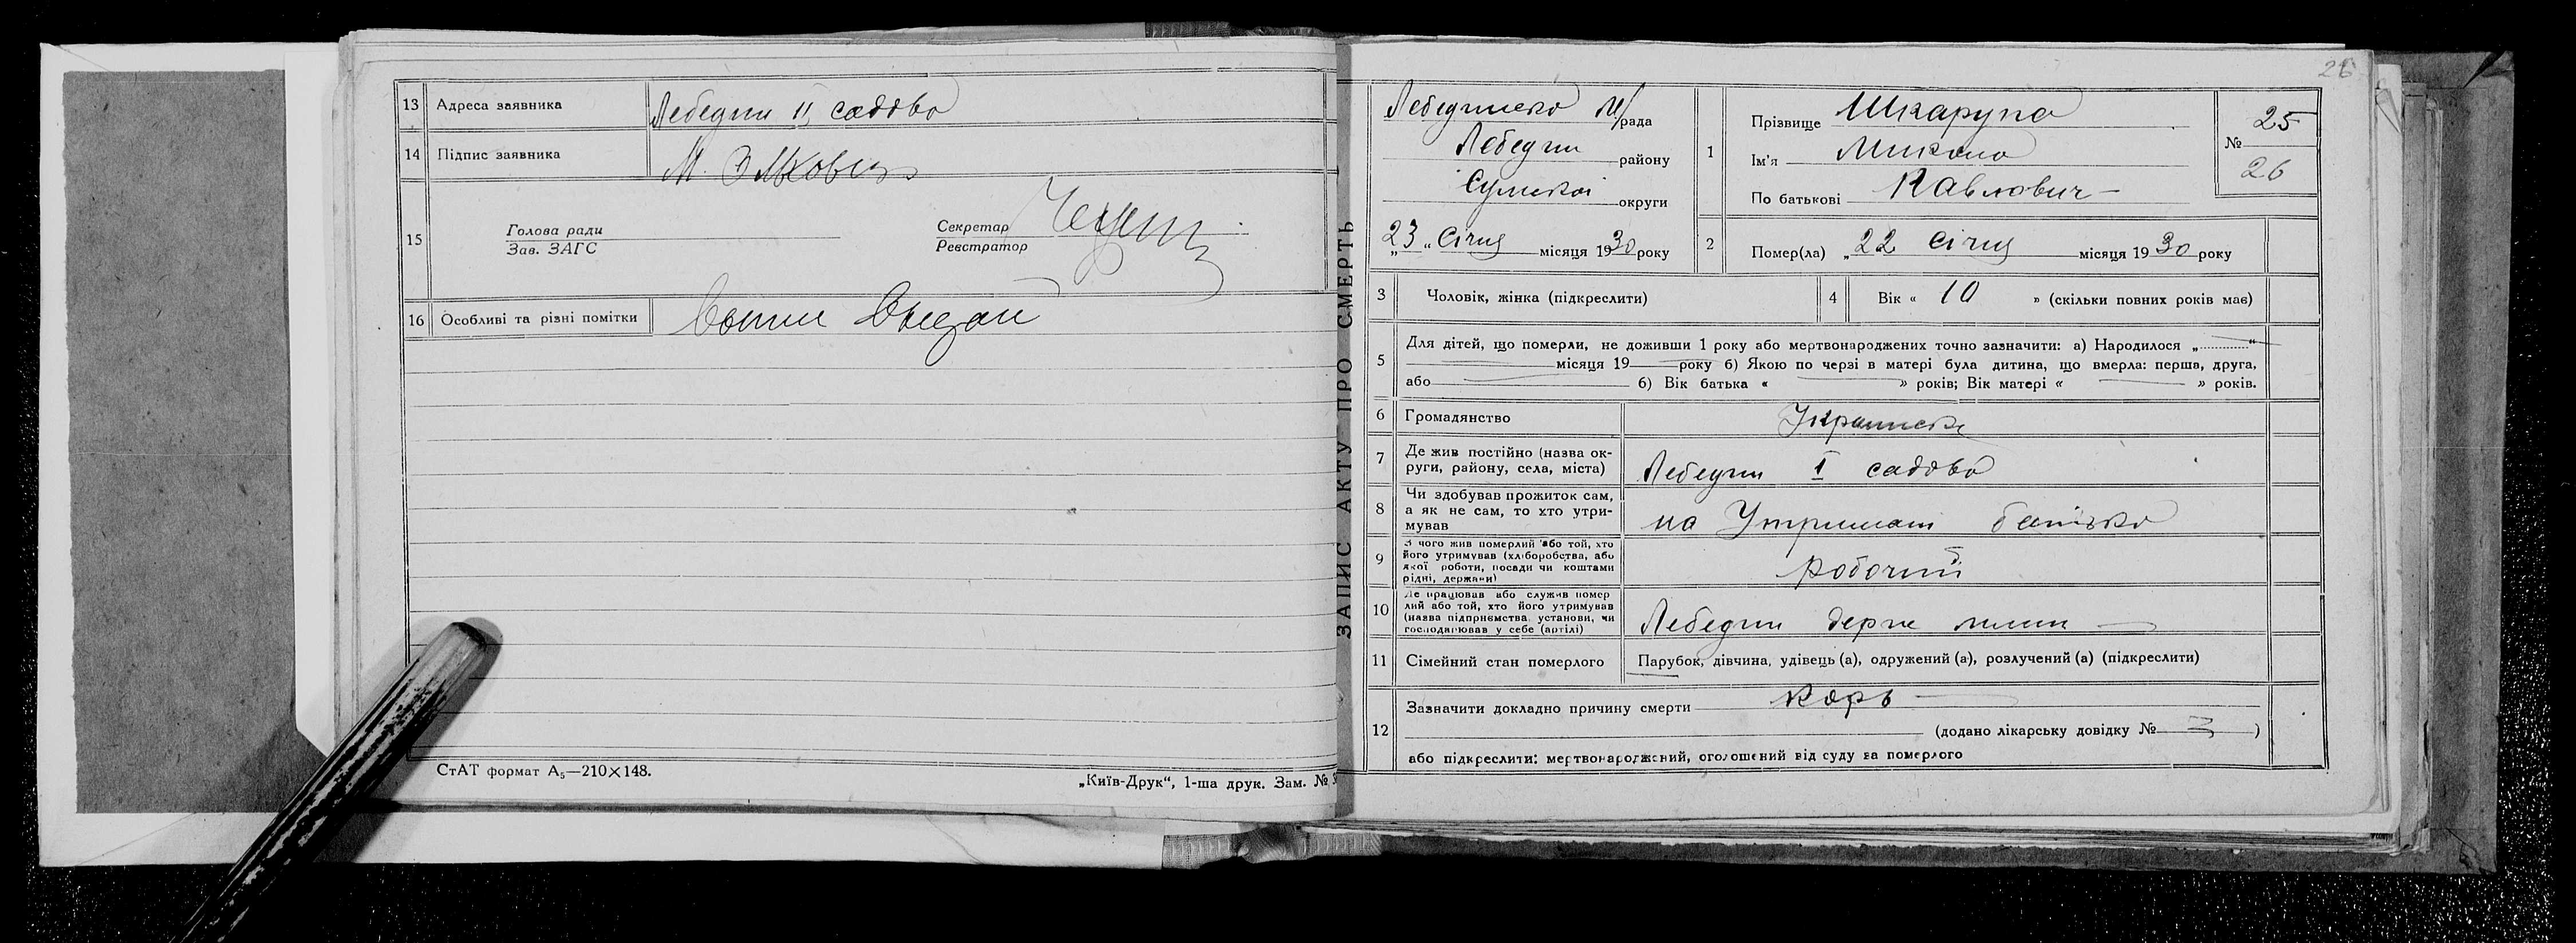 13 Адреса заявника Лебедин II садова
14 Підпис заявника М.
15 Голова ради
Зав. ЗАГС
Секретар
Реєстратор
16 Особливі та різні помітки
СтАТ формат А₅—210×148.
„Київ-Друк“, 1-ша друк. Зам. №
ЗАПИС АКТУ ПРО СМЕРТЬ
26
Лебединська М/рада
Лебедин району
Сумської округи
„23„ Січня місяця 1930 року
1 Прізвище Шкарупа
Ім'я Микола
По батькові Павлович
№ 25
26
2 Помер(ла) „22 Січня місяця 1930 року
3 Чоловік, жінка (підкреслити)
4 Вік « 10 » (скільки повних років має)
5 Для дітей, що померли, не доживши 1 року або мертвонароджених точно зазначити: а) Народилося „ “
місяця 19 року б) Якою по черзі в матері була дитина, що вмерла: перша, друга,
або б) Вік батька « » років; Вік матері « » років.
6 Громадянство Украинське
7 Де жив постійно (назва ок-
руги, району, села, міста) Лебедин I садова
8 Чи здобував прожиток сам,
а як не сам, то хто утри-
мував на Утримані батька
9 З чого жив померлий або той, хто
його утримував (хліборобства, або
якої роботи, посади чи коштами
рідні, держави) робочий
10 Де працював або служив помер
лий або той, хто його утримував
(назва підприємства, установи, чи
господарював у себе (артілі) Лебедин держ млин
11 Сімейний стан померлого Парубок, дівчина, удівець (а), одружений (а), розлучений (а) (підкреслити)
12 Зазначити докладно причину смерти Корь
(додано лікарську довідку № 3 )
або підкреслити: мертвонароджений, оголошений від суду за померлого